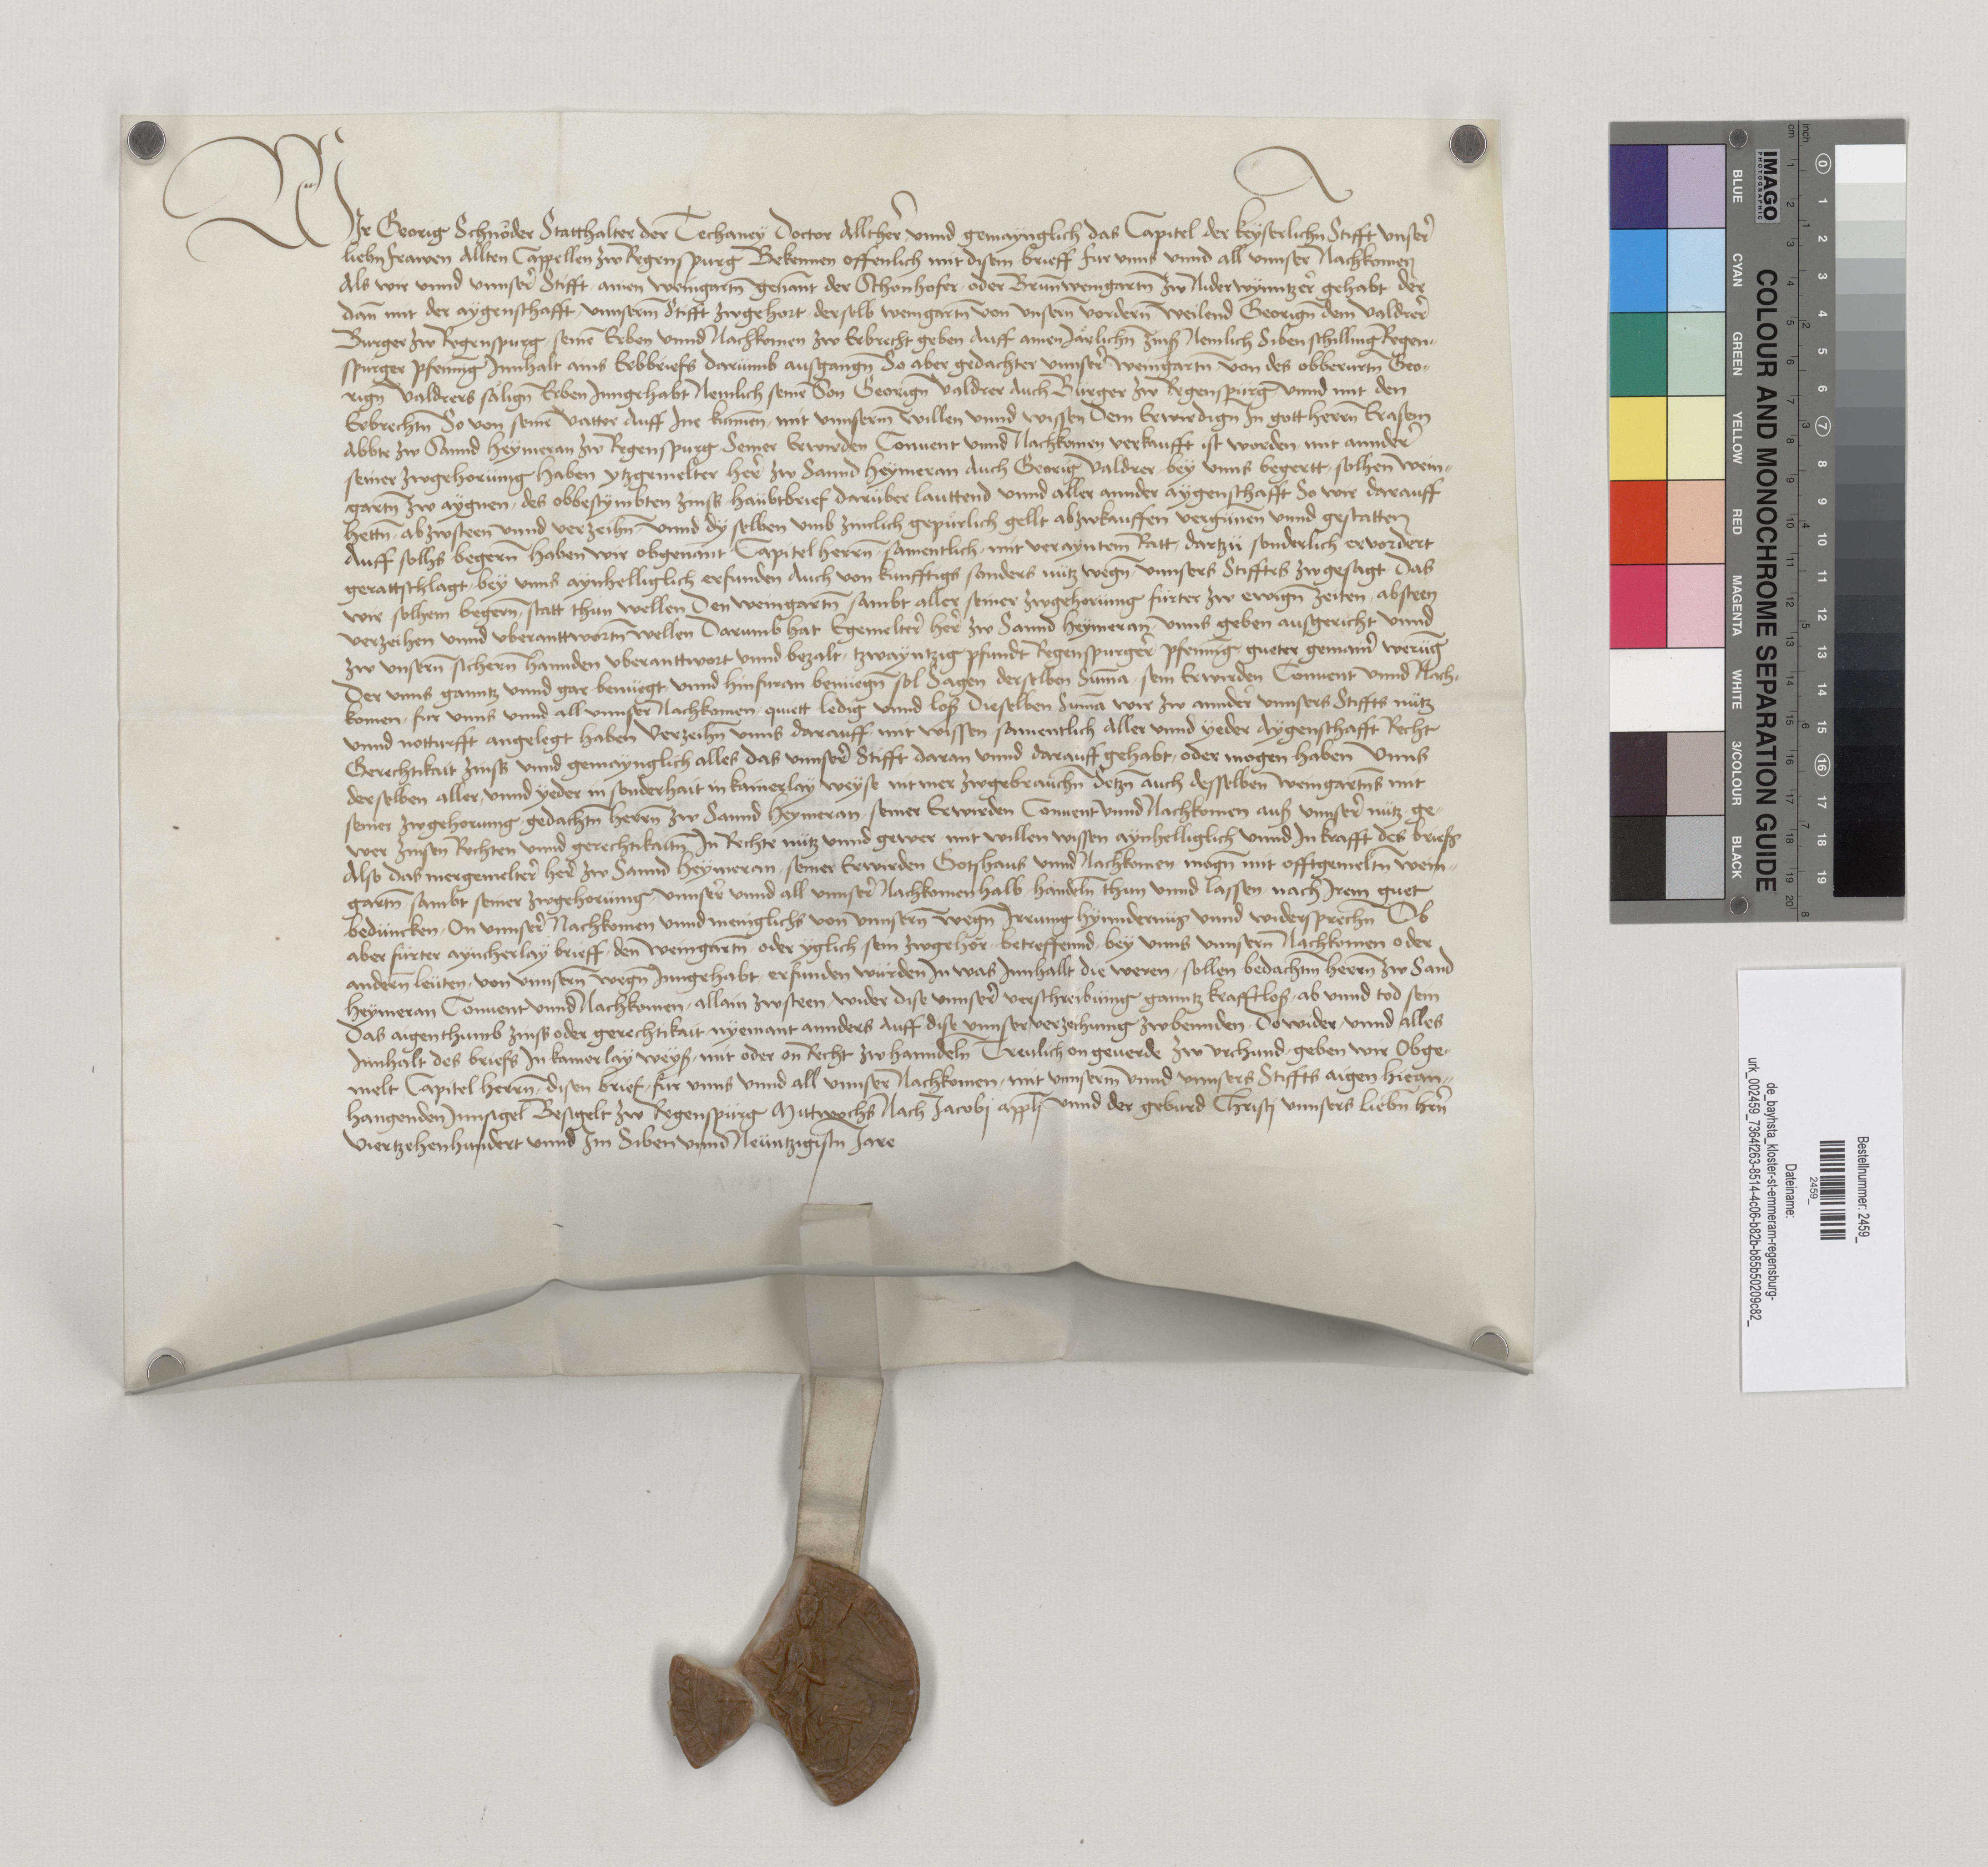 Wir Georig Schnöder Statthalter der Techaney Doctor Allther̃ vnnd gemaynglich das Capitel der keyserlichn̄ Stifft vnser̃
liebn̄ frawen Allten Cappellen zw Regenspurg Bekennen offenlich mit disem brieff fur vnns vnnd all vnnser Nachkomen
Als wir vnnd vnnser̃ Stifft ainen weingartn̄ genant der Schonhofer oder Brunweingartn̄ zw Niderwynntzer̃ gehabt der
dan̄ mit der aygenschafft vnnserm̄ Stifft zwgehort derselb weingartn̄ von vnsern̄ vordern̄ weilend Georign̄ dem Valdrer̃
Burger zw Regenspurg seinē Erben vnnd Nachkomen zw Erbrecht geben Auff ainen Järlichn̄ zinß Nemlich Siben schilling Regen-
spurger pfening Innhalt ains Erbbriefs darumb außgangn̄ So aber gedachter vnnser̃ weingartn̄ von des obberurtn̄ Geo-
rign̄ Valdrers salign̄ Erben Inngehabt Nemlich seinē Son Georign̄ Valdrer Auch Burger zw Regenspurg vnnd mit den
Erbrechtn̄ So von seinē vatter Auff Ine kumen mit vnnserm̄ willen vnnd wissen Dem Erwirdign̄ In gott herrn̄ Erasem
Abbte zw Sannd Heymeran zw Regenspurg Seiner Erwirden Conuent vnnd Nachkomen verkaufft ist worden mit annder̃
seiner zwgehorung Haben ytzgemelter her̃ zw Sannd Heymeran Auch Georig Valdrer bey vnns begertt solhen wein-
gartn̄ zw aygnen des obbestymbten zinss haubtbrief darüber lauttend vnnd aller annder aygenschafft So wir darauff
hettn̄ abzwsteen vnnd verzeihn̄ vnnd dy selben vmb zimlich gepürlich gellt abzwkauffen vergünen vnnd gestatten
Auff solhs begern̄ haben wir obgenant Capitel herrn̄ samentlich mit verayntem Ratt dartzu sonderlich ervordert
gerattschlagt bey vnns aynhelliglich erfunden Auch von kunfftigs sonders nutz wegn̄ vnnsers Stifftes zwgesagt Das
wir solhem begern̄ statt thun wellen Den weingartn̄ sambt aller seiner zwgehorung fürter zw ewign̄ zeiten absteen
verzeihen vnnd vberanttwortn̄ wellen Darumb hat Egemelter̃ her̃ zw Sannd Heymeran vnns geben ausgericht vnnd
zw vnsern̄ sichern̄ hannden vberanttwort vnnd bezalt tzwayntzig pfundt Regenspurger̃ pfening gueter gemainr̃ werung
Der vnns ganntz vnnd gar benüegt vnnd hinfuran benüegn̄ sol Sagen derselben Suma sein Erwirden Conuent vnnd Nach-
komen fur vnns vnnd all vnnser Nachkomen quitt ledig vnnd loß Dieselben Suma wir zw annder̃ vnnsers Stiffts nütz
vnnd notturfft angelegt haben Verzeihn̄ vnns darauff mit wissen samentlich Aller vnnd yeder Aygenschafft Recht
Gerechtikait zinss vnnd gemaynglich alles das vnnser̃ Stifft daran vnnd darauff gehabt oder mogen haben Vnns
derselben aller vnnd yeder in sonderhait in kainerlay weyse nit mer zwgebrauchn̄ Setzn̄ auch desselben weingartns mit
seiner zwgehorung gedachtn̄ herrn̄ zw Sannd Heymeran seiner Erwirden Conuent vnnd Nachkomen auß vnnser̃ nütz ge-
wer zinsen Rechten vnnd gerechtikaitn̄ In Rechte nütz vnnd gewer mit willen wissen aynhelliglich vnnd In krafft des briefs
Also das mergemelter̃ her̃ zw Sannd Heymeran seiner Erwirden Gotzhaus vnnd Nachkomen mogn̄ mit offtgemeltn̄ wein-
gartn̄ sambt seiner zwgehorung vnnser̃ vnnd all vnnser̃ Nachkomen halb handeln̄ thun vnnd lassen nach Irem guet
beduncken On vnnser̃ Nachkomen vnnd meniglichs von vnnsern̄ wegn̄ Irrung hynndernüß vnnd widersprechn̄ Ob
aber fürter ayncherlay brieff den weingartn̄ oder yglich sein zwgehör betreffennd bey vnns vnnsern̄ Nachkomen oder
andern̄ leüten von vnnsern̄ wegn̄ Inngehabt erfunden würden In was Innhallt die weren sollen bedachtm̄ herrn̄ zw Sand
Heymeran Conuent vnnd Nachkomen allain zwsteen wider dise vnnser̃ verschreibung ganntz krafftloß ab vnnd tod sein
Das aigenthumb zinss oder gerechtikait nyemant annders Auff dise vnnser verzeihung zwbennden Dowider vnnd alles
Innhalt des briefs In kainerlay weyß mit oder on Recht zw hanndeln̄ Treulich on geuerde Zw vrchund geben wir Obge-
melt Capitel herrn̄ disen brief fur vnns vnnd all vnnser Nachkomen mit vnnserm̄ vnnd vnnsers Stiffts aigen hieran-
hangenden Innsigel Besigelt zw Regenspurg Mittwochs Nach Jacobj appli vnnd der geburd Christj vnnsers liebn̄ hrn̄
Viertzehenhundert vnnd Im Siben vnnd Neüntzigistn̄ Jare
IMAGO
PHOTOGRAPHIC
COLOUR AND MONOCHROME SEPARATION GUIDE
BLUE CYAN GREEN YELLOW RED MAGENTA WHITE 3/COLOUR BLACK
cm 1 2 3 4 5 6 7 8 9 10 11 12 13 14 15 16 17 18 19 20
inch 1 2 3 4 5 6 7 8
0 1 2 3 4 5 6 7 8 9 10 11 12 13 14 15 16 17 18 19
Bestellnummer: 2459_
2459_
Dateiname:
de_bayhsta_kloster-st-emmeram-regensburg-
urk_002459_7364f263-8514-4c06-b82b-b85b50209c82_